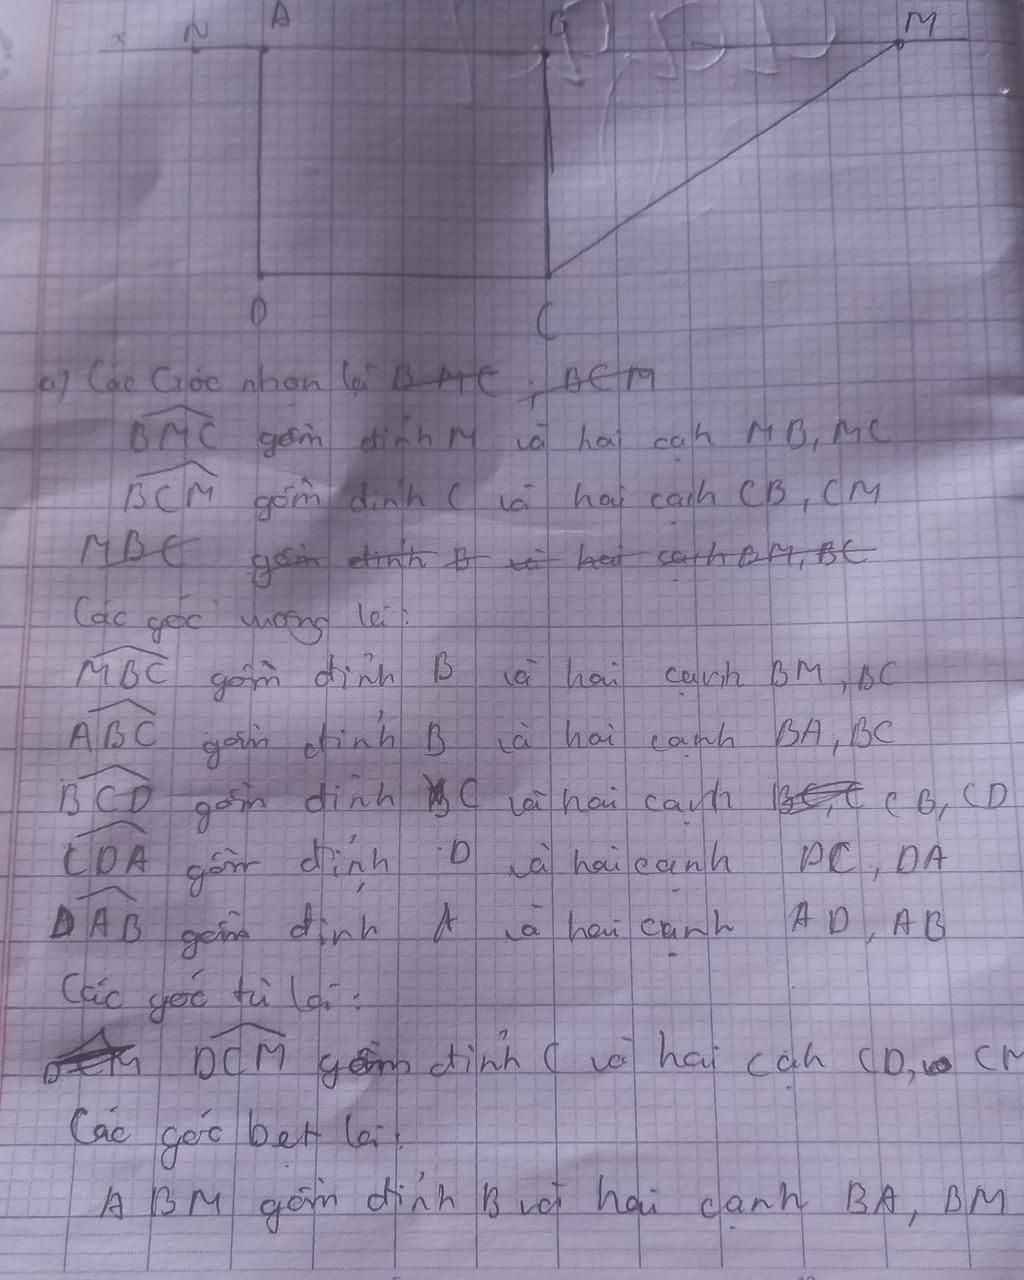 x N A B M
D C
a) Các Góc nhọn là BMC ; BCM
BMC gồm đỉnh M và hai cạh MB, MC
BCM gồm đỉnh C và hai cạch CB, CM
MBC gồm đỉnh B và hai cạnh BM, BC
Các góc vuông là:
MBC gồm đỉnh B và hai cạnh BM, BC
ABC gồm đỉnh B và hai cạnh BA, BC
BCD gồm đỉnh C và hai cạnh CB, CD
CDA gồm đỉnh D và hai cạnh DC, DA
DAB gồm đỉnh A và hai cạnh AD, AB
Các góc tù là:
DCM gồm đỉnh C và hai cạh CD, CM
Các góc bẹt là:
ABM gồm đỉnh B và hai cạnh BA, BM